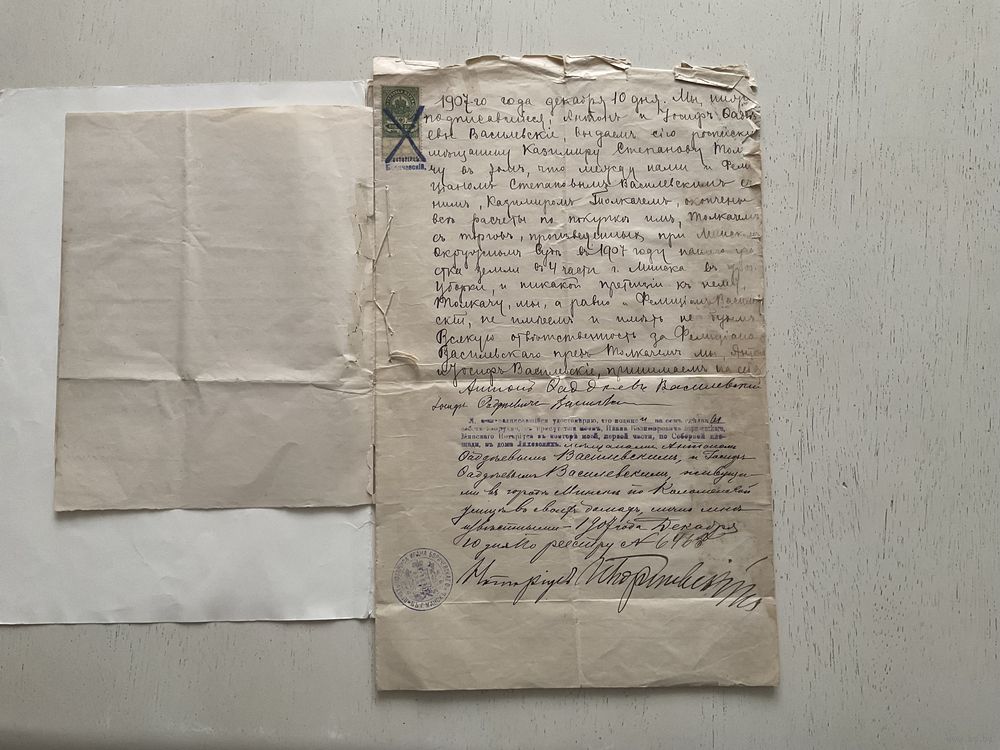 1907-го года декабря 10 дня. Мы, ниже
подписавшіеся, Антонъ и Іосифъ Фадд
евы Василевскіе, выдаемъ сію росписку
мѣщанину Казимиру Степанову Толка
чу въ томъ, что между нами и Фели
ціаномъ Степановымъ Василевскимъ съ
нимъ, Казимиромъ Толкачемъ, окончены
всѣ расчеты по покупкѣ имъ, Толкачемъ
съ торговъ, произведенныхъ при Минском
Окружномъ Судѣ въ 1907 году нашего уча
стка земли въ 4 части г. Минска въ
и никакой претензіи къ нему,
Толкачу, мы, а равно и Фелиціанъ Василев
скій, не имѣемъ и имѣть не будемъ
Всякую отвѣтственность за Фелиціана
Василевскаго предъ Толкачемъ мы, Антон
и Іосифъ Василевскіе, принимаемъ на себя
Антонъ Фаддѣевъ Василевский
Василевски
Я, нижеподписавшійся, удостовѣряю, что подпи и на семъ сдѣлан ы
собственноручно, въ присутствіи моемъ, Ивана
Минскаго Нотаріуса въ конторѣ моей, первой части, по Соборной пло-
щади, въ домѣ мѣщанами Антономъ
Фаддѣевымъ Василевскимъ, и Іосифъ
Фаддѣевымъ Василевскимъ, живущи
ми въ городѣ Минскѣ по
улицѣ въ своихъ домахъ, лично мнѣ
извѣстными. 1907 года Декабря
10 дня По реестру №
Нотаріусъ